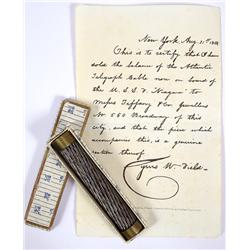 New York, Aug. 21st 1858
This is to certify that I have
sold the balance of the Atlantic
Telegraph Cable now on board of
the U. S. S. F. "Niagara" to
Messrs Tiffany & Co Jewellers
No 550 Broadway of this
city, and that the piece which
accompanies this, is a genuine
section thereof.
Cyrus W. Field.